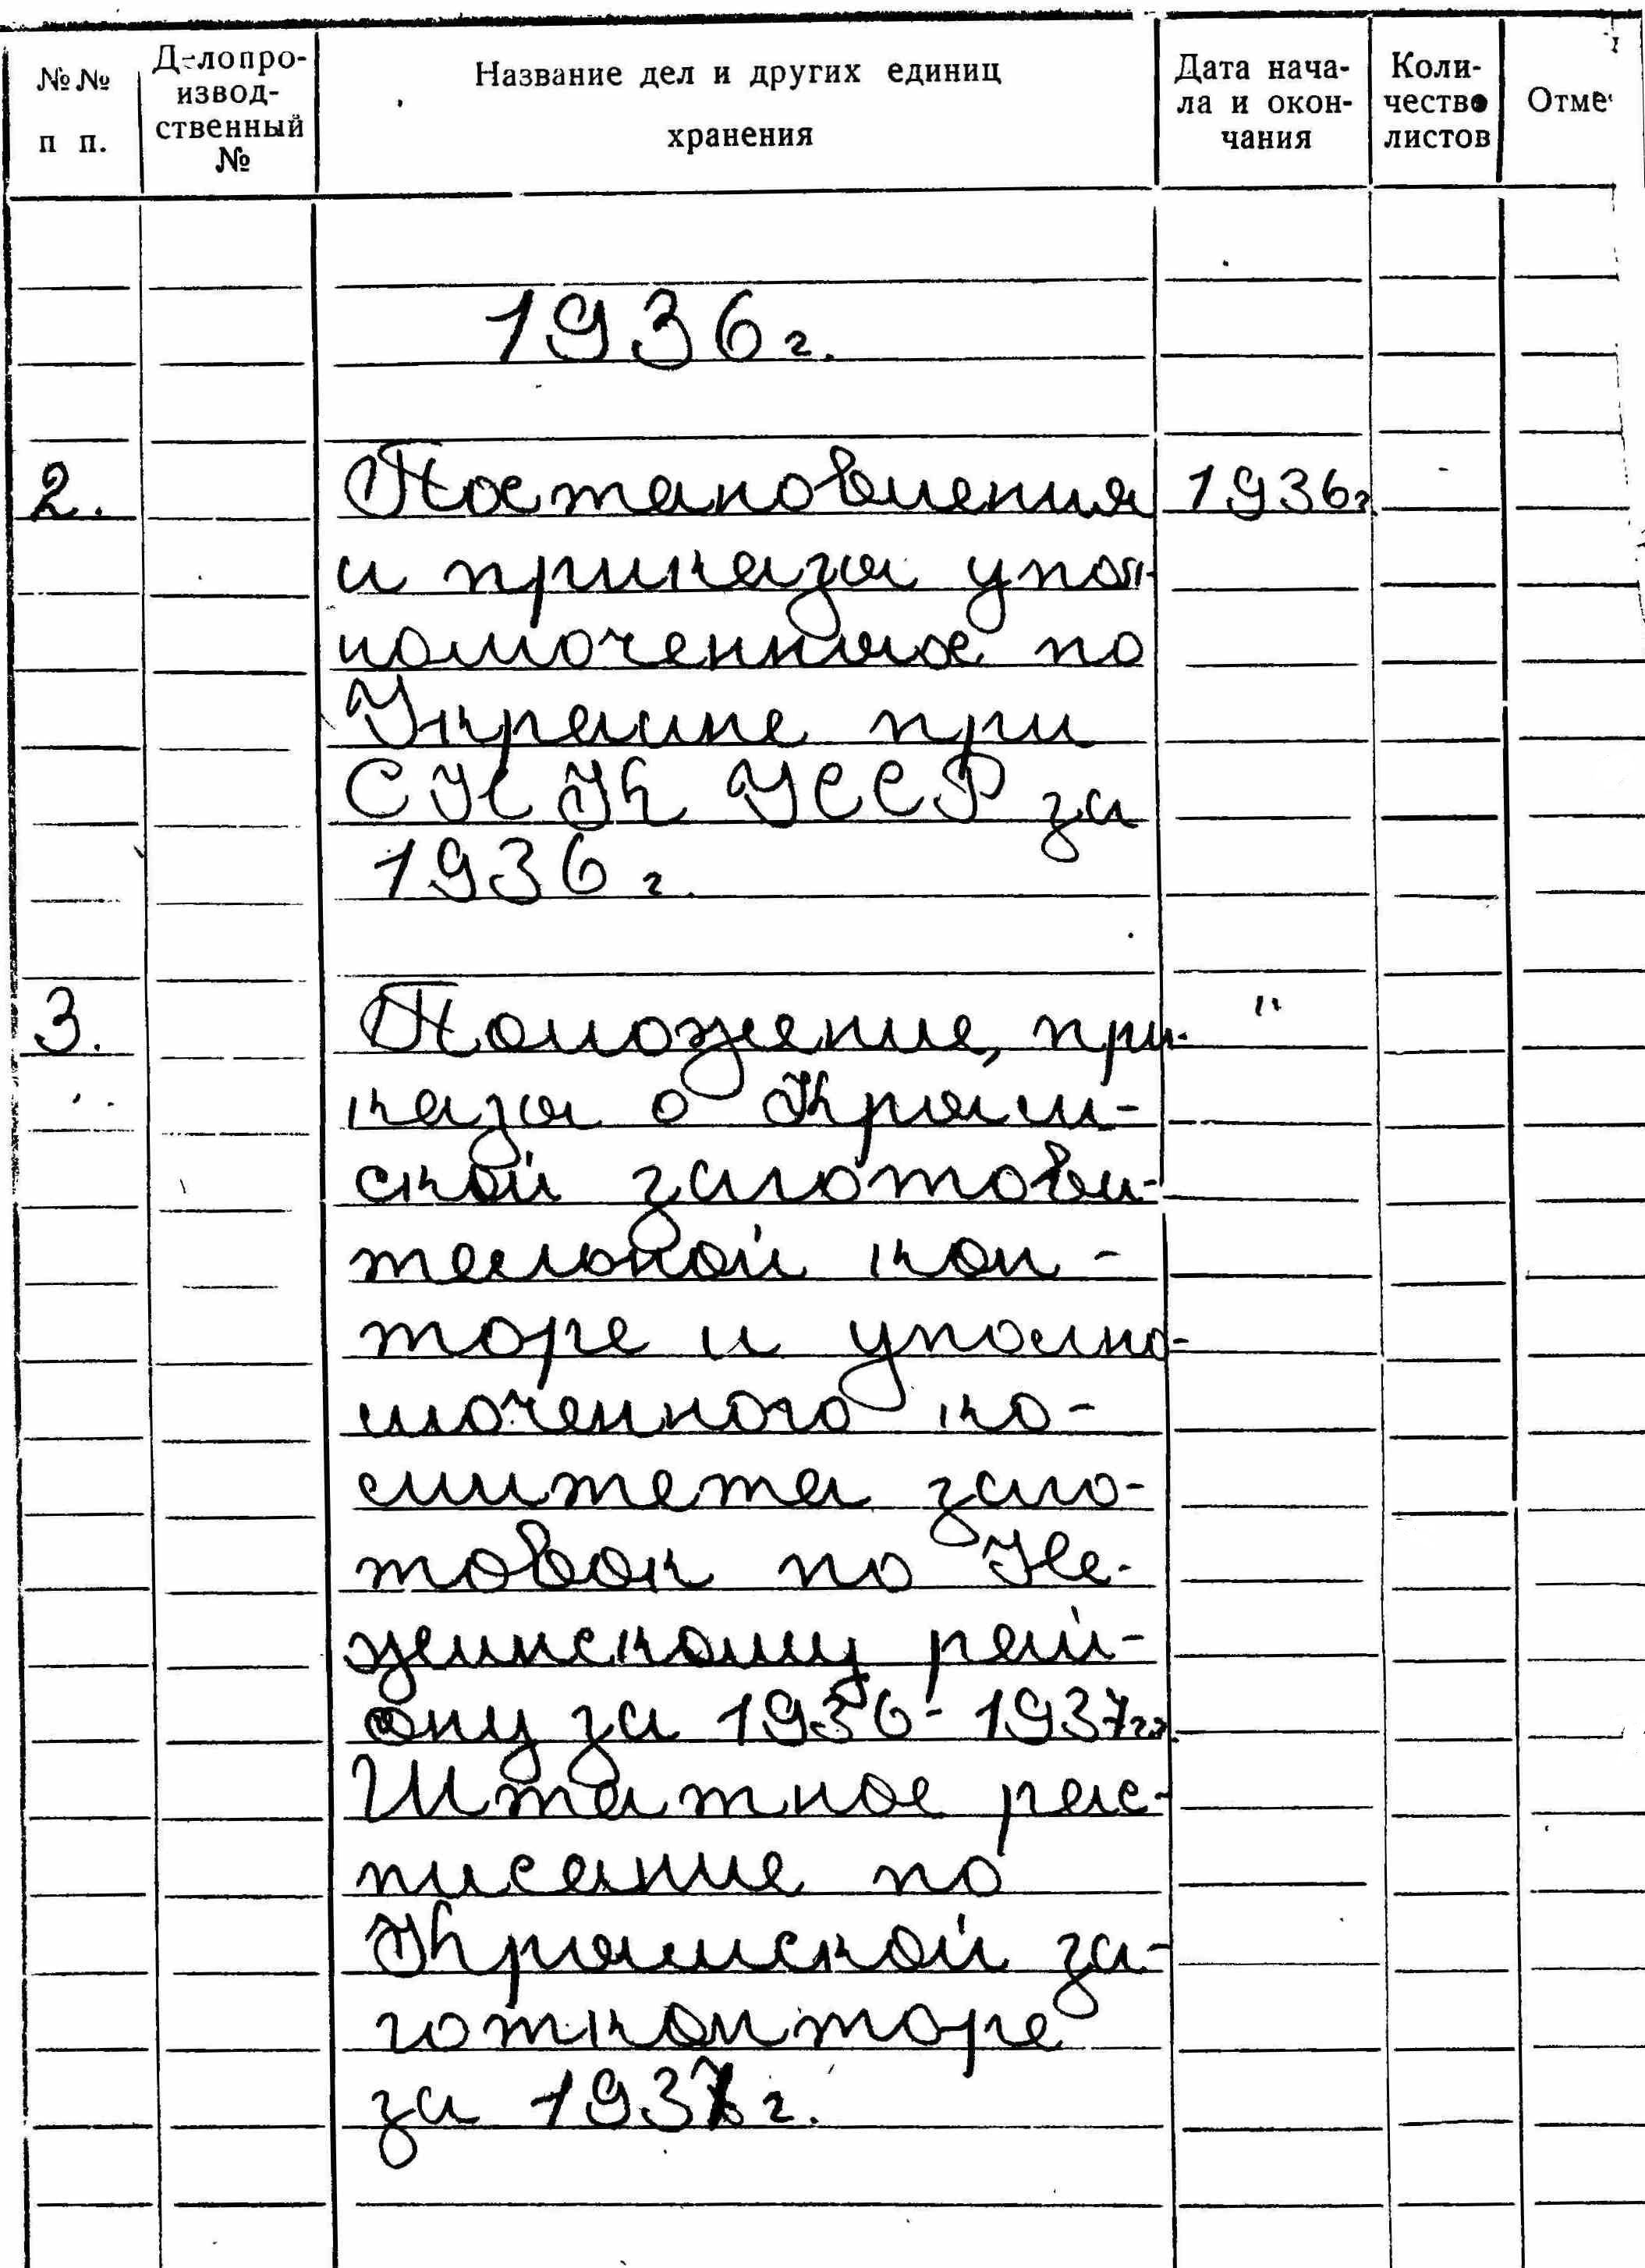 №№ п п.
Делопро-
извод-
ственный
№
Название дел и других единиц
хранения
Дата нача-
ла и окон-
чания
Коли-
чество
листов
Отме
1936 г.
2. Постановления 1936г.
и приказы упол-
номоченных по
Украине при
СНК УССР за
1936 г.
3. Положение, при- "
казы о Крым-
ской заготови-
тельной кон-
торе и уполно-
моченного ко-
митета заго-
товок по Не-
жинскому рай-
ону за 1936-1937гг.
Штатное рас-
писание по
Крымской за-
готконторе
за 193 г.